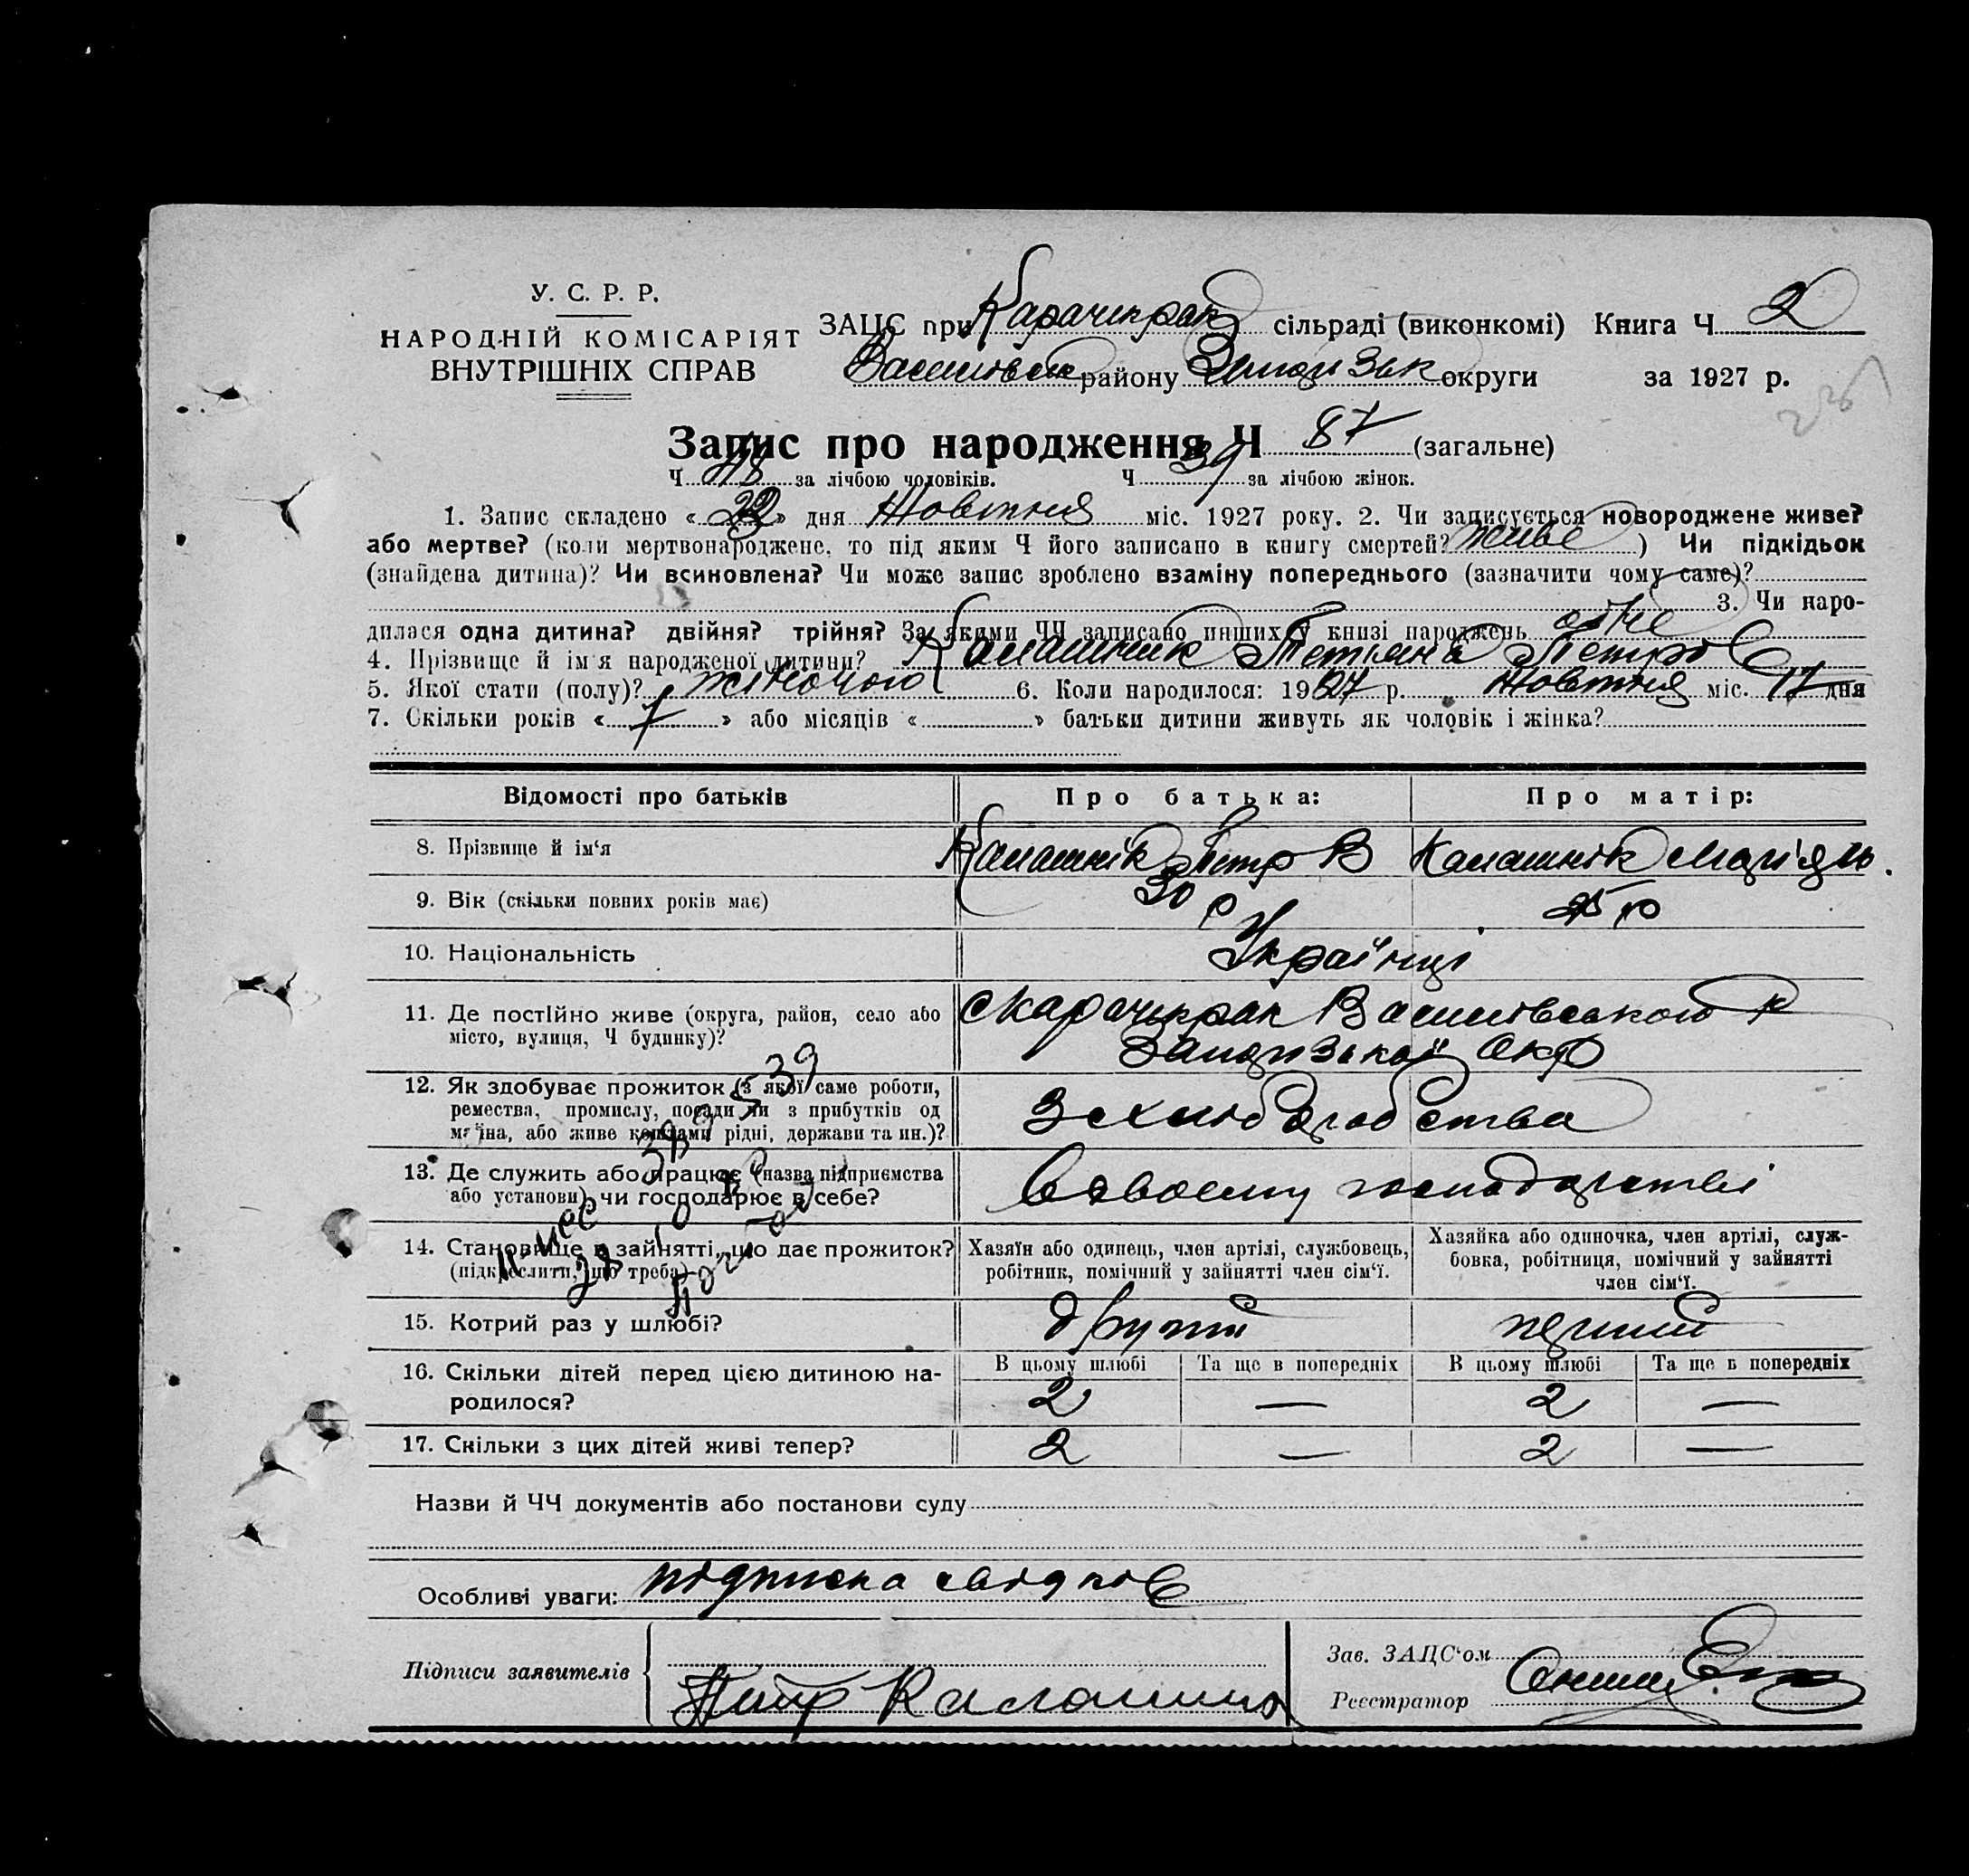 У. С. Р. Р.
НАРОДНІЙ КОМІСАРІЯТ
ВНУТРІШНІХ СПРАВ
ЗАЦС при Карачекрак сільраді (виконкомі) Книга Ч 2
Василівск району Запорізьк округи за 1927 р.
Запис про народження Ч 87 (загальне)
Ч 48 за лічбою чоловіків. Ч 39 за лічбою жінок.
1. Запис складено « 22 » дня Жовтня міс. 1927 року. 2. Чи записується новороджене живе?
або мертве? (коли мертвонароджене, то під яким Ч його записано в книгу смертей? живе ) Чи підкідьок
(знайдена дитина)? Чи всиновлена? Чи може запис зроблено взаміну попереднього (зазначити чому саме)?
3. Чи наро-
дилася одна дитина? двійня? трійня? За якими ЧЧ записано инших у книзі народжень одне
4. Прізвище й ім'я народженої дитини? Калашник Тетяна Петров
5. Якої стати (полу)? жіночого 6. Коли народилося: 1927 р. Жовтня міс. 17 дня
7. Скільки років « 7 » або місяців « » батьки дитини живуть як чоловік і жінка?
Відомості про батьків Про батька: Про матір:
8. Прізвище й ім'я Калашнік Петро В Калашнік
9. Вік (скільки повних років має) 30 р 25 р
10. Національність Українці
11. Де постійно живе (округа, район, село або
місто, вулиця, Ч будинку)?
с Карачекрак Василівського р
Запорізької Окр
12. Як здобуває прожиток (з якої саме роботи,
ремества, промислу, посади чи з прибутків од
майна, або живе коштами рідні, держави та ин.)?
З хліборобства
13. Де служить або працює (назва підприємства
або установи) чи господарює в себе?
В своєму господарстві
14. Становище в зайнятті, що дає прожиток?
(підкреслити, що треба)
Хазяїн або одинець, член артілі, службовець,
робітник, помічний у зайнятті член сім'ї.
Хазяйка або одиночка, член артілі, служ-
бовка, робітниця, помічний у зайнятті
член сім'ї.
15. Котрий раз у шлюбі? другий перший
В цьому шлюбі Та ще в попередніх В цьому шлюбі Та ще в попередніх
16. Скільки дітей перед цією дитиною на-
родилося?
2 — 2 —
17. Скільки з цих дітей живі тепер? 2 — 2 —
Назви й ЧЧ документів або постанови суду
Особливі уваги: підписка свідків
Підписи заявителів
Петр Калашник
Зав. ЗАЦС'ом
Реєстратор